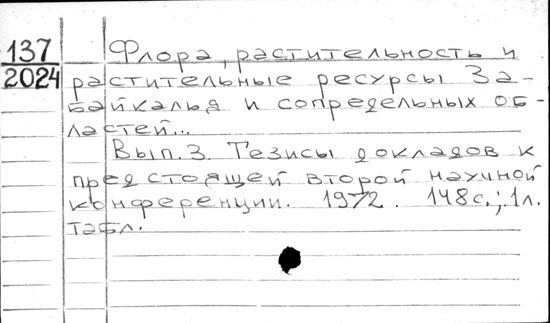 137
2024
Флора, растительность и
растительные ресурсы За-
байкалья и сопредельных об-
ластей...
Вып. 3. Тезисы докладов к
предстоящей второй научной
конференции. 1972. 148 с.; 1 л.
табл.